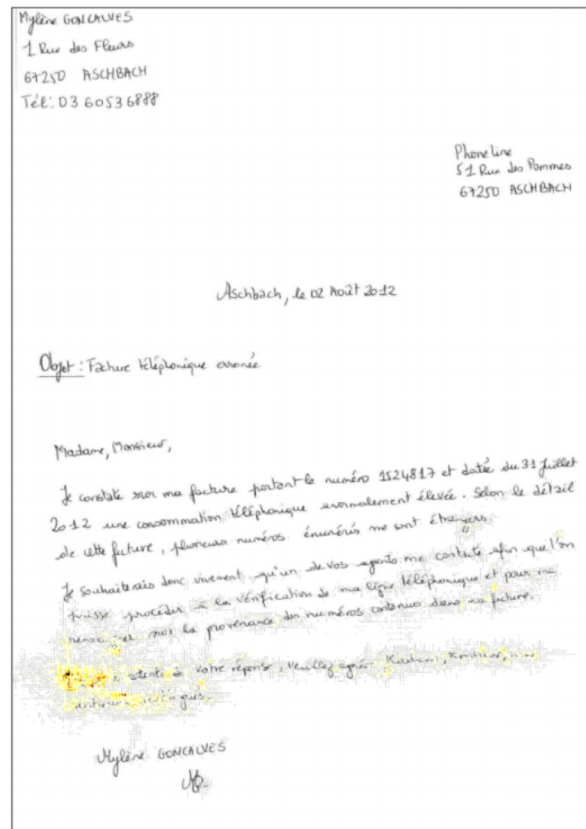 Mylène GONCALVES
1 Rue des Fleurs
67250 ASCHBACH
Tél: 03 60536888
PhoneLine
51 Rue des Pommes
67250 ASCHBACH
Aschbach, le 02 Août 2012
Objet : Facture téléphonique erronée
Madame, Monsieur,
Je constate sur ma facture portant le numéro 1524817 et datée du 31 Juillet
2012 une consommation téléphonique anormalement élevée. Selon le détail
de cette facture, plusieurs numéros énumérés me sont étrangers.
Je souhaiterais donc vivement qu'un de vos agents me contacte afin que l'on
puisse procéder à la vérification de ma ligne téléphonique et pour me
sur la provenance des numéros contenus dans ma facture.
votre réponse, veuillez agréer
Mylène GONCALVES